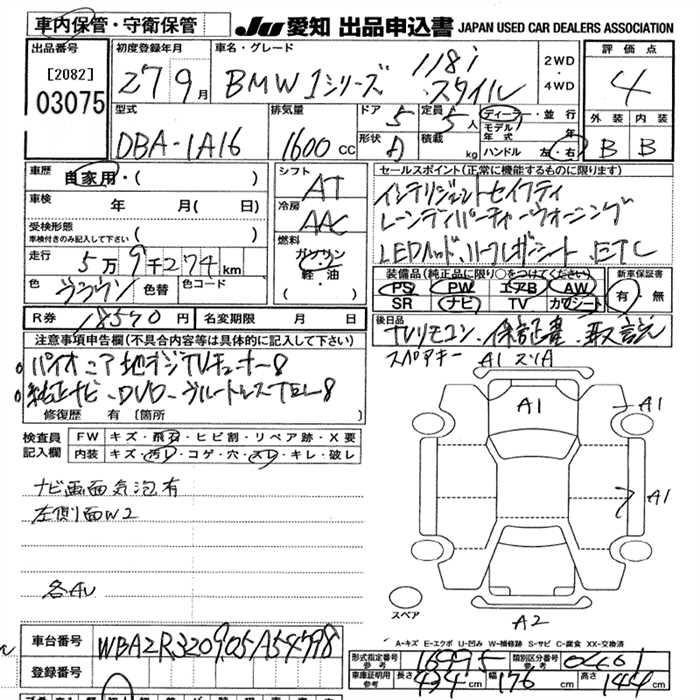 車内保管・守衛保管
JU 愛知 出品申込書 JAPAN USED CAR DEALERS ASSOCIATION
出品番号 初度登録年月 車名・グレード 2WD・4WD 評価点
[2082]
03075
27 9月 BMW 1シリーズ 118i スタイル 4
型式 排気量 ドア 定員 ディーラー・並行 外装 内装
DBA-1A16 1600cc 5 5人 モデル年式 年 B B
形状 積載 kg ハンドル 左・右
車歴 自家用・( ) シフト AT セールスポイント(正常に機能するものに限ります)
車検 年 月(日) 冷房 AAC インテリジェントセイフティ
受検形態 車検付きのみ記入して下さい ( ) レーンディパーチャーウォーニング
走行 5万9千274km 燃料 ガソリン・軽・油 ( ) LEDヘッド、ハーフレザーシート、ETC
色 ブラウン 色替 色コード
装備品(純正品に限り○をつけてください) 新車保証書
PS PW エアB AW 有・無
SR ナビ TV カワシート
R券 18540円 名変期限 月 日
後日品 TVリモコン、保証書、取説
スペアキー A1 スリA
注意事項申告欄(不具合内容等は具体的に記入して下さい)
パイオニア地デジTVチューナー8
純正ナビ、DVD、ブルートゥースTEL8
修復歴 有 〔箇所
検査員記入欄 FW キズ・飛石・ヒビ割・リペア跡・X要
内装 キズ・汚レ・コゲ・穴・スレ・キレ・破レ
ナビ画面気泡有
左側面W2
各AU
A1
A1
A1
A2
スペア
A-キズ E-エクボ U-凹み W-補修跡 S-サビ C-腐食 XX-交換済
車台番号 WBA2R320905A54798
登録番号
形式指定番号 参考 16995 類別区分番号 参考 0461
車庫証明用参考 長さ 434cm 幅 176cm 高さ 144cm